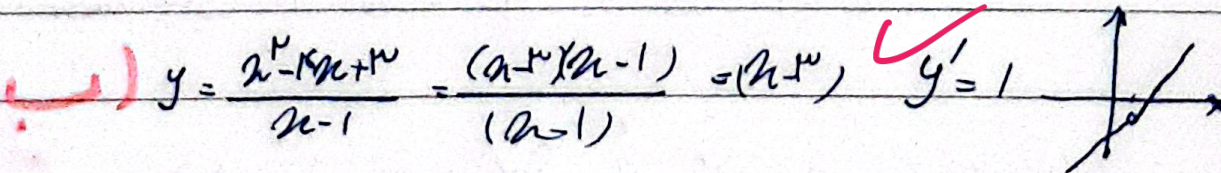 ب) y = (x^۲-۴x+۳)/(x-1) = ((x-۳)(x-1))/((x-1)) = (x-۳) y' = 1